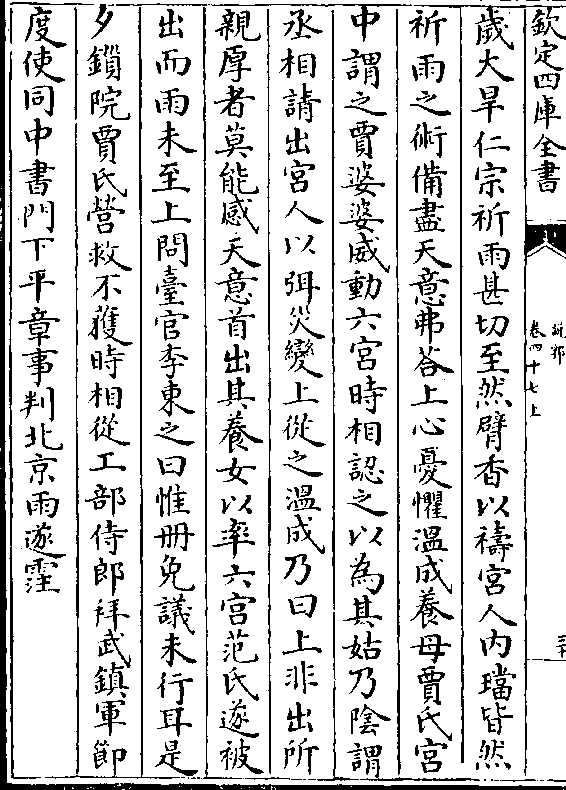 欽定四庫全書
說郛
卷四十七上
歲大旱仁宗祈雨甚切至然臂香以禱宮人内璫皆然
祈雨之術備盡天意弗荅上心憂懼溫成養母賈氏宮
中謂之賈婆婆威動六宮時相認之以為其姑乃陰謂
丞相請出宮人以弭災變上從之溫成乃曰上非出所
親厚者莫能感天意首出其養女以率六宮范氏遂被
出而雨未至上問臺官李東之曰惟冊免議未行耳是
夕鎖院賈氏營救不獲時相從工部侍郎拜武鎮軍節
度使同中書門下平章事判北京雨遂霔